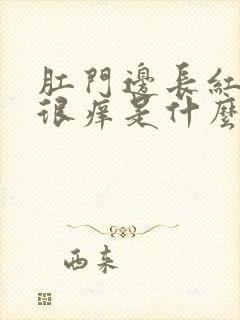 肛門邊長紅
很痒是什麼
西来